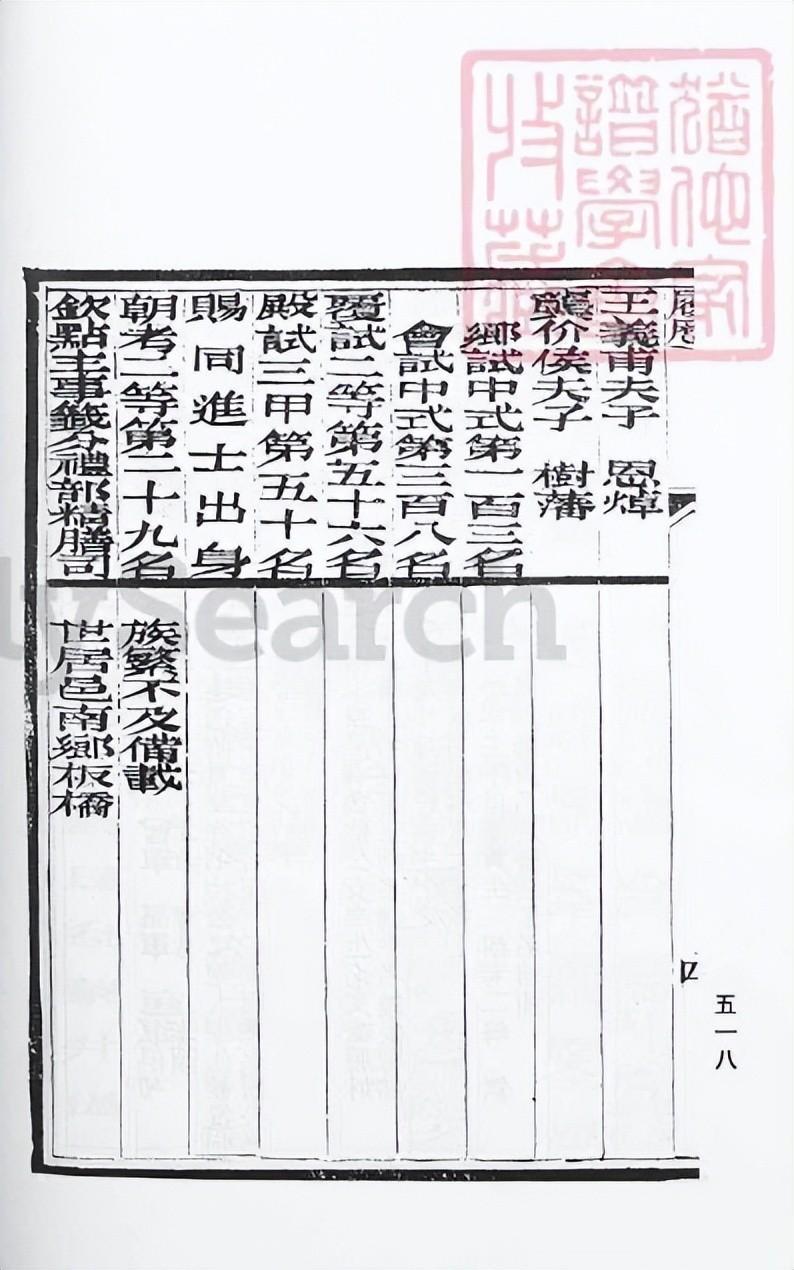 履歷
王義甫夫子 恩焯
龔价侯夫子 樹藩
鄉試中式第一百三名
會試中式第三百八名
覆試二等第五十六名
殿試三甲第五十名
賜同進士出身
朝考二等第二十九名
欽點主事籤分禮部精膳司
族繁不及備載
世居邑南鄉板橋
五一八